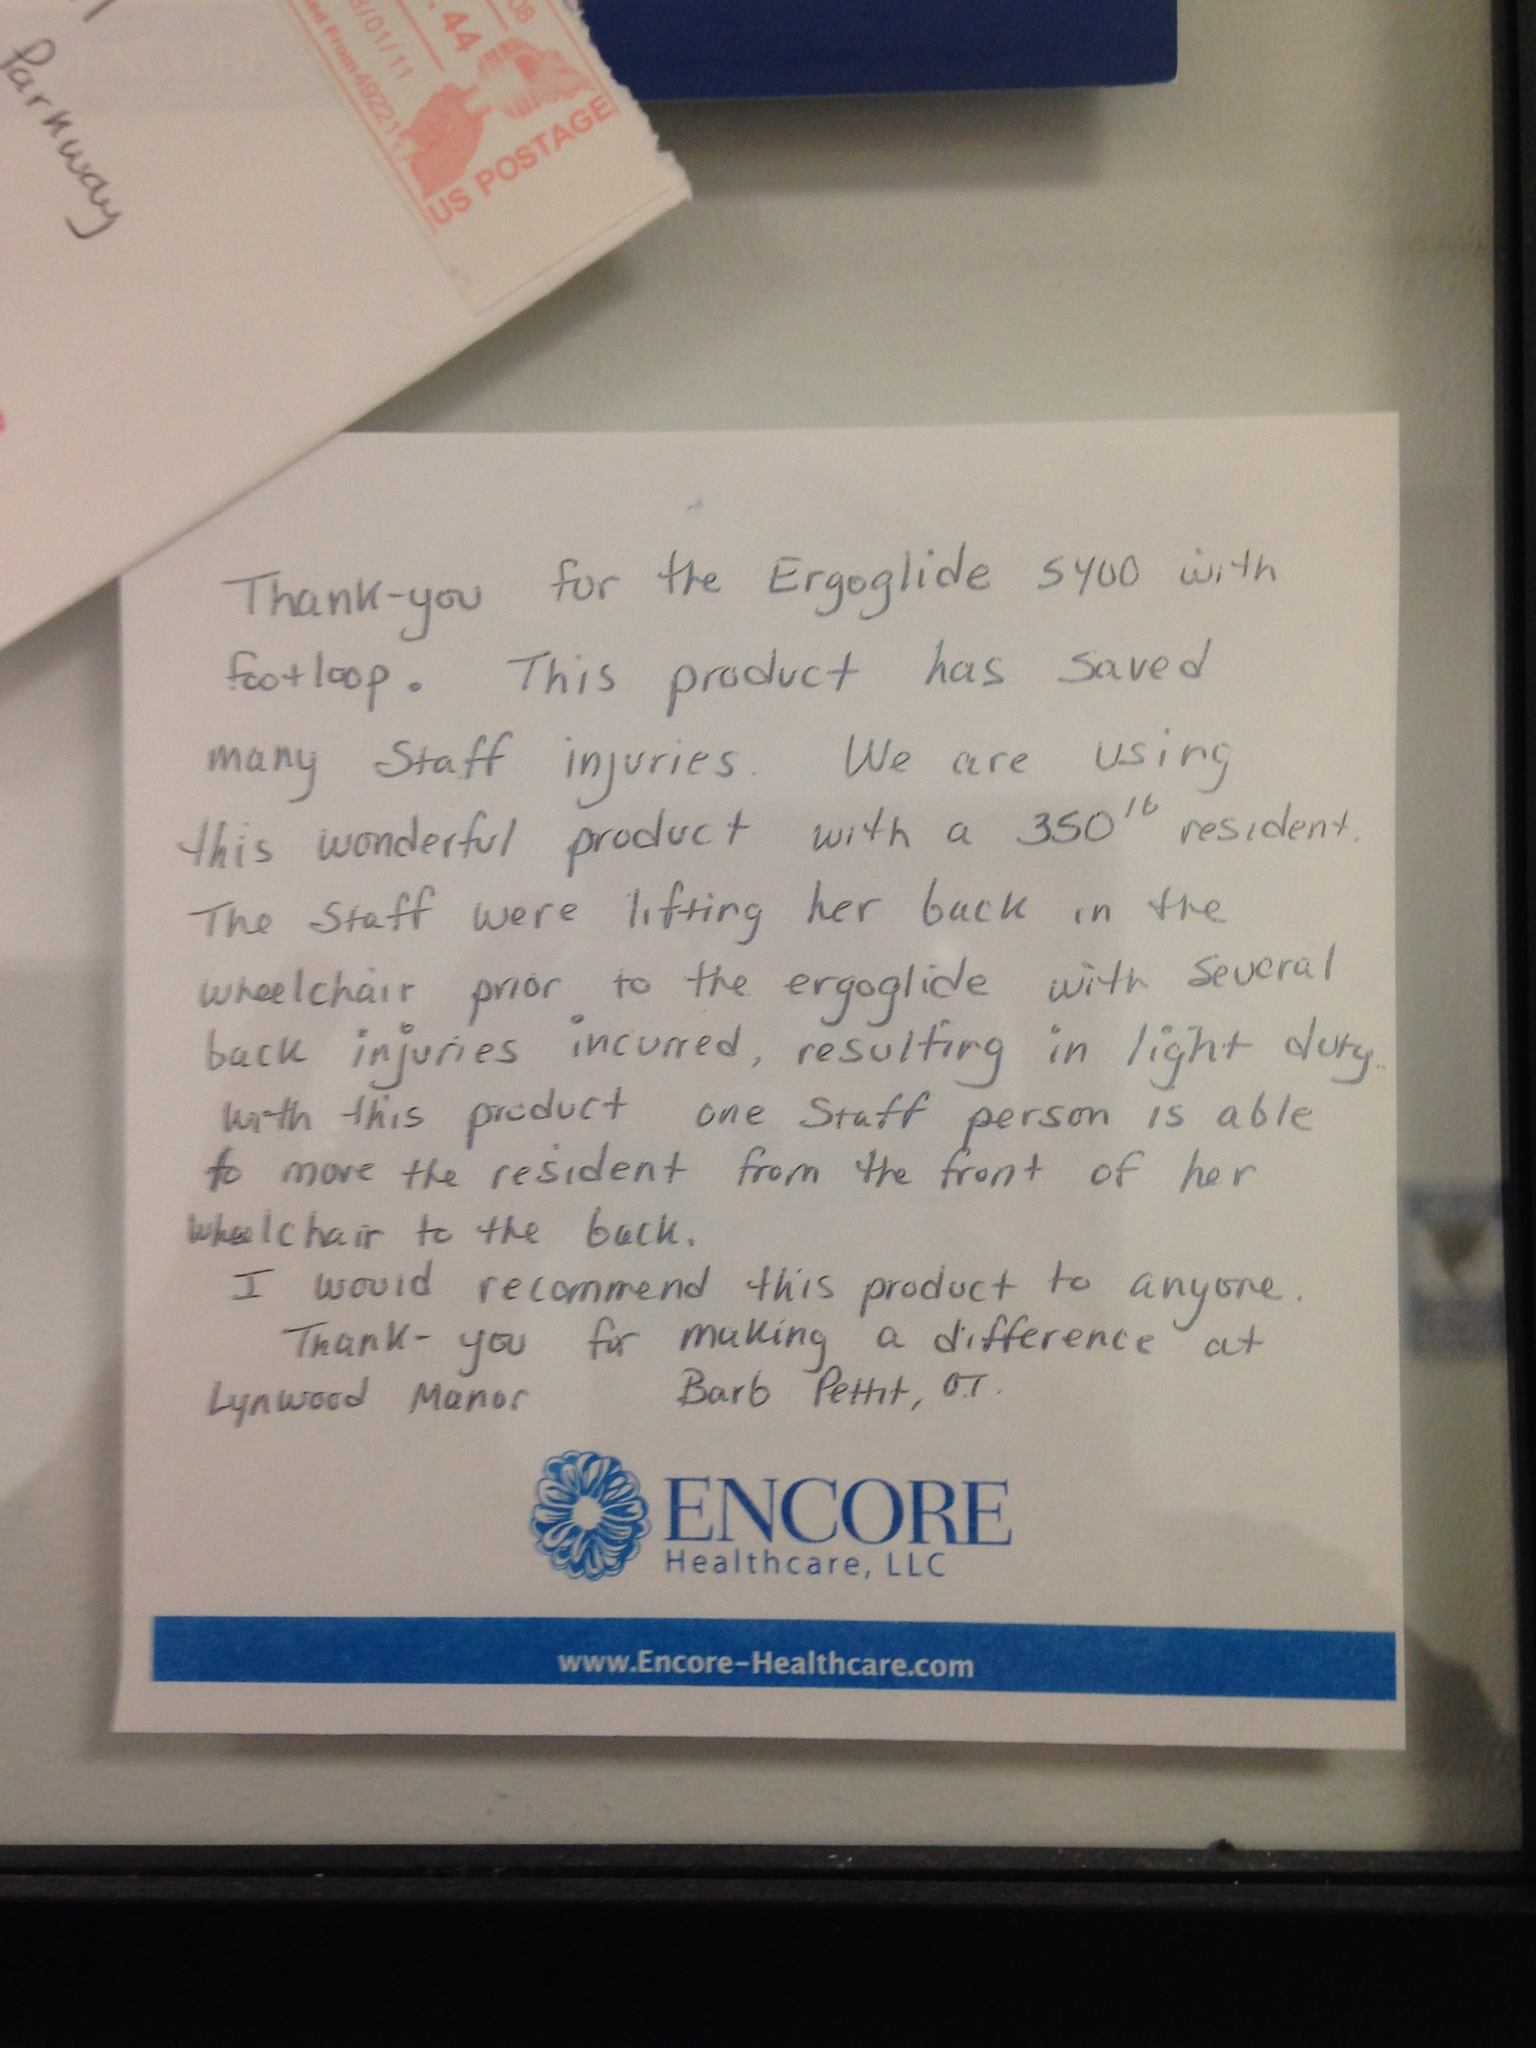 Parkway
8/01/11
.44
08
ed From 49221
US POSTAGE
Thank-you for the Ergoglide 5400 with
footloop. This product has saved
many Staff injuries. We are using
this wonderful product with a 350 lb resident.
The Staff were lifting her back in the
wheelchair prior to the ergoglide with several
back injuries incurred, resulting in light duty.
With this product one Staff person is able
to move the resident from the front of her
wheelchair to the back.
I would recommend this product to anyone.
Thank-you for making a difference at
Lynwood Manor Barb Pettit, O.T.
ENCORE
Healthcare, LLC
www.Encore-Healthcare.com